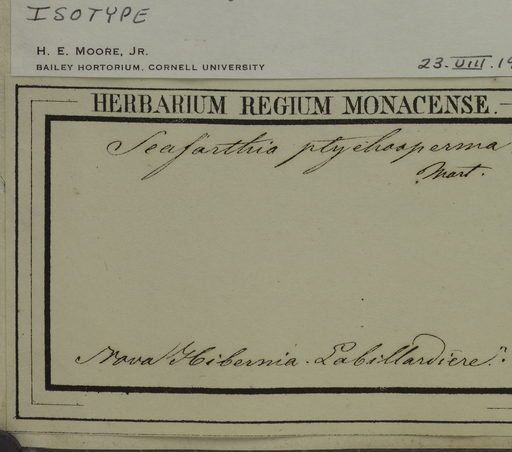 ISOTYPE
H. E. MOORE, JR.
BAILEY HORTORIUM, CORNELL UNIVERSITY
23.VIII.19
HERBARIUM REGIUM MONACENSE.—
Seaforthia ptychosperma
Mart.
Nova Hibernia. Labillardière.